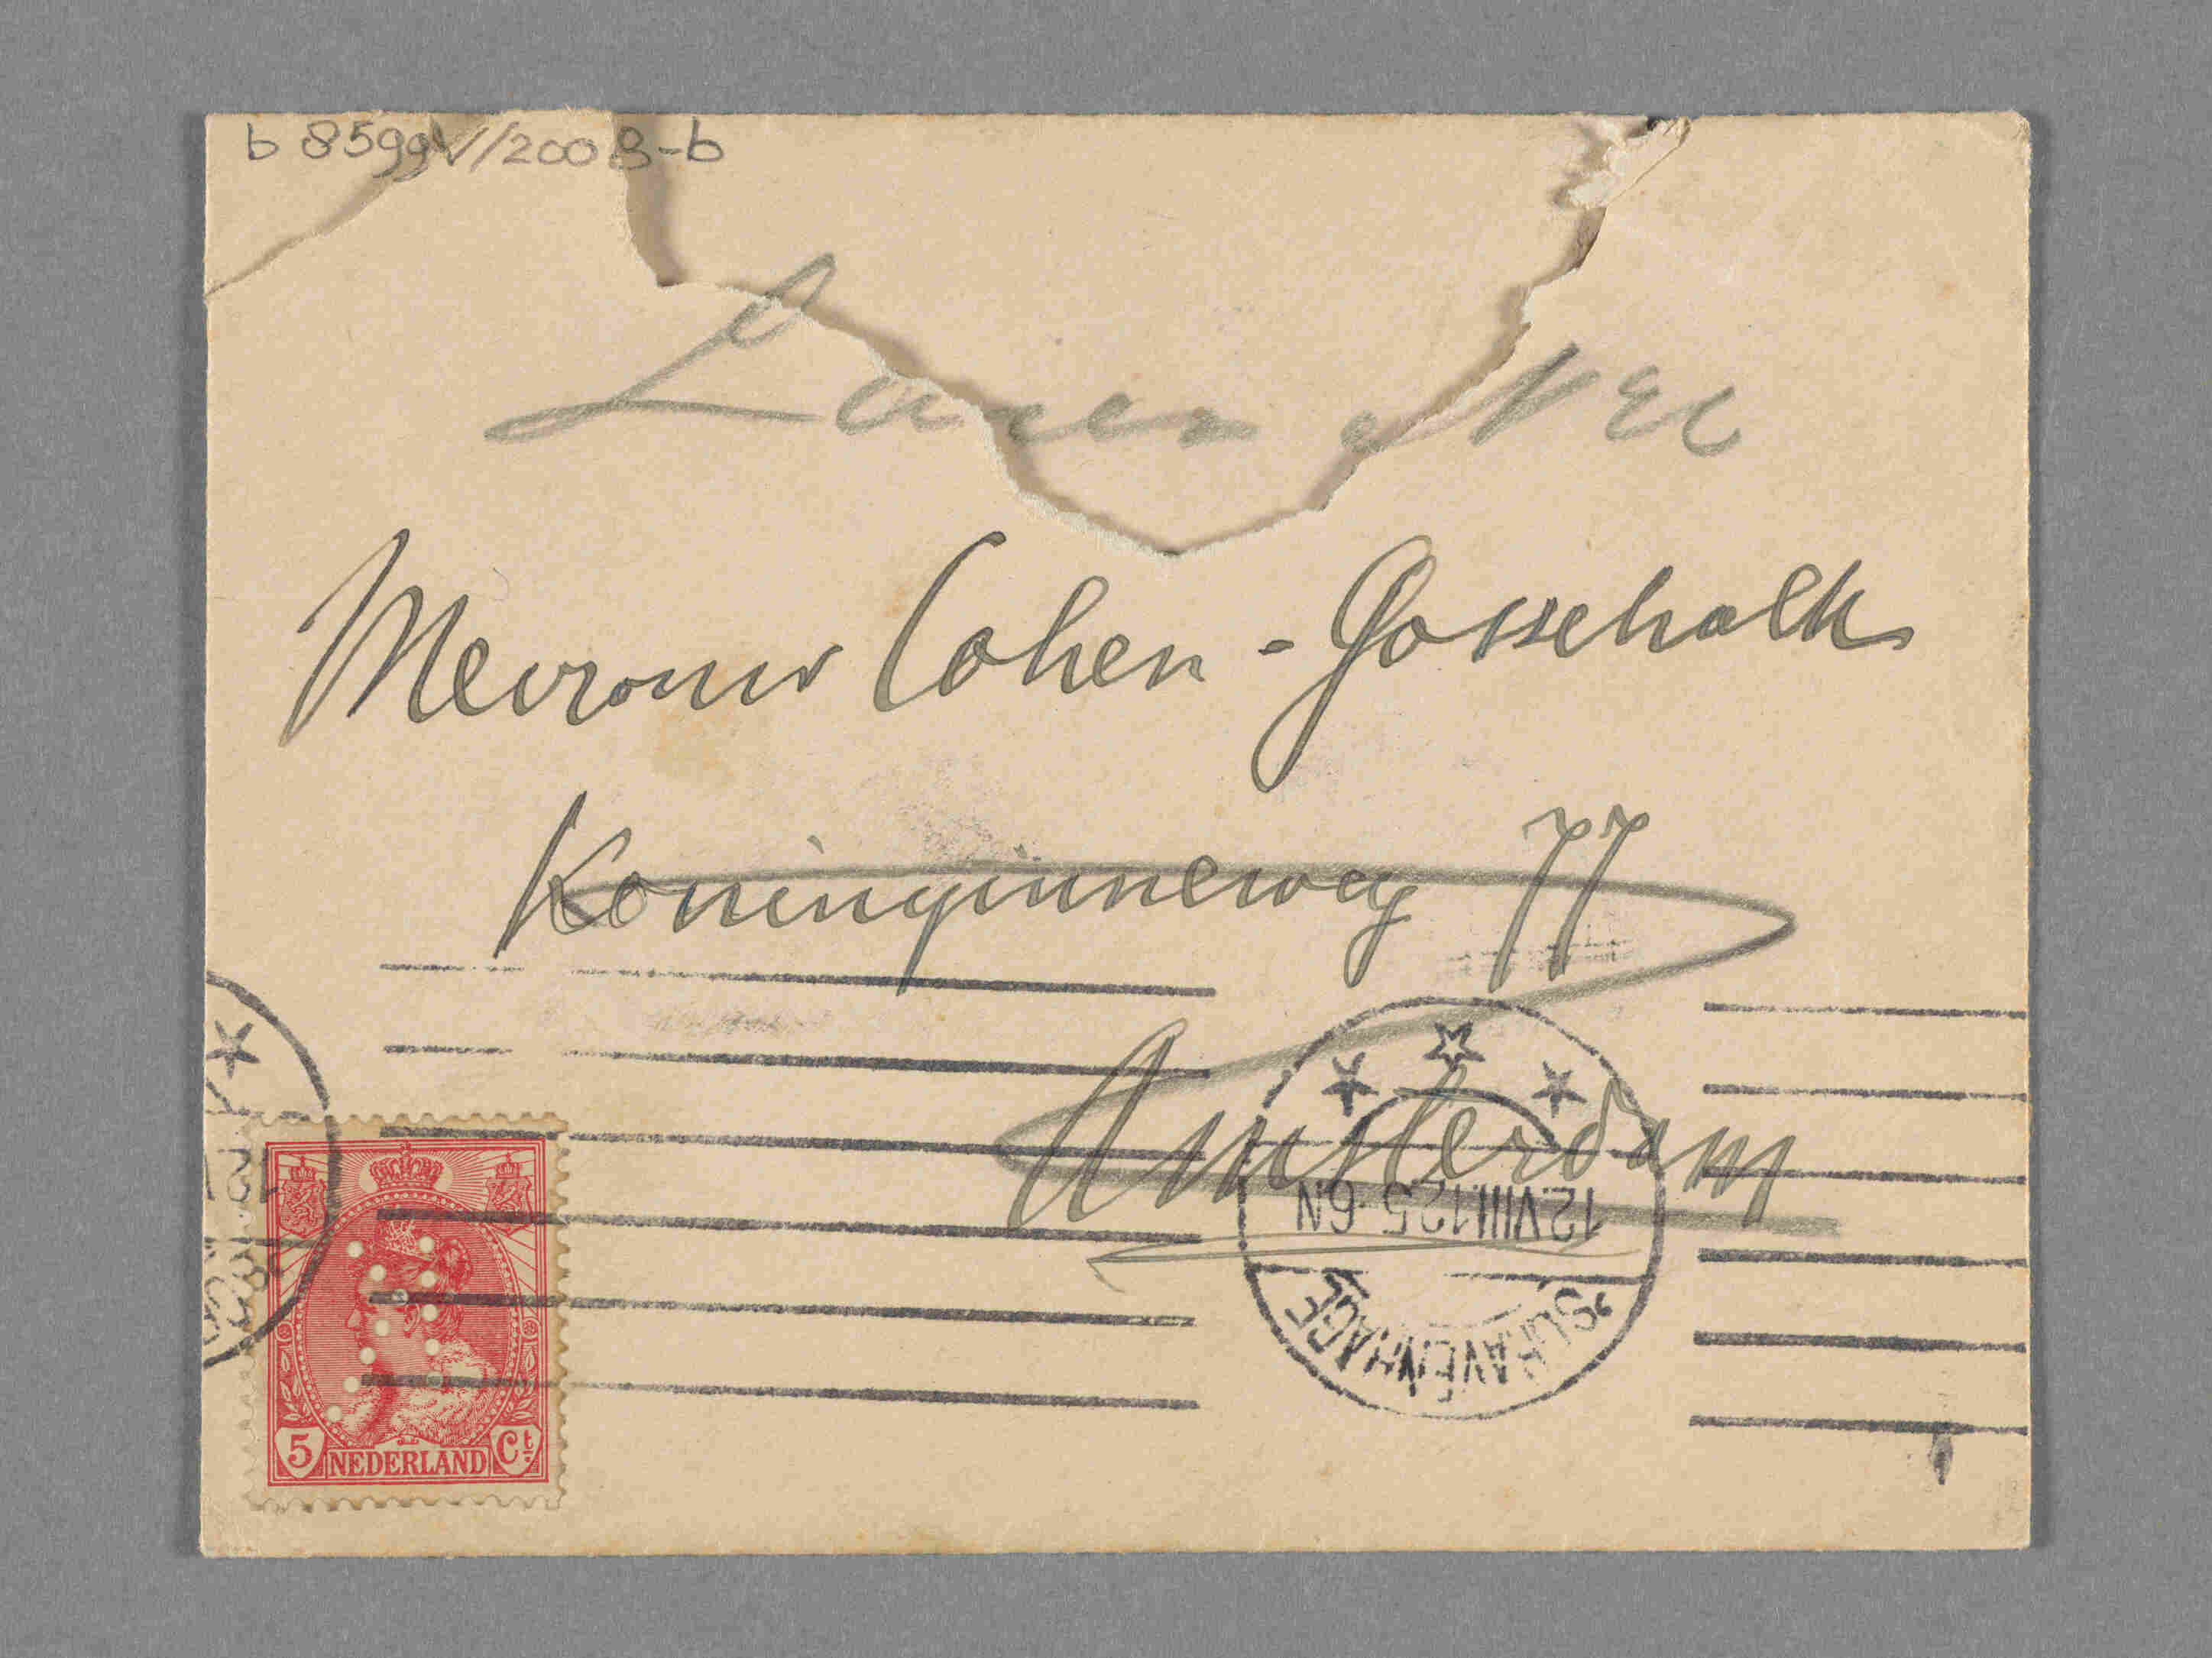 b 8599 V/2008-b
Laren
Mevrouw Cohen-Gosschalk
Koninginneweg 77
Amsterdam
12.VIII.12 5-6N
'SGRAVENHAGE
5 NEDERLAND Ct